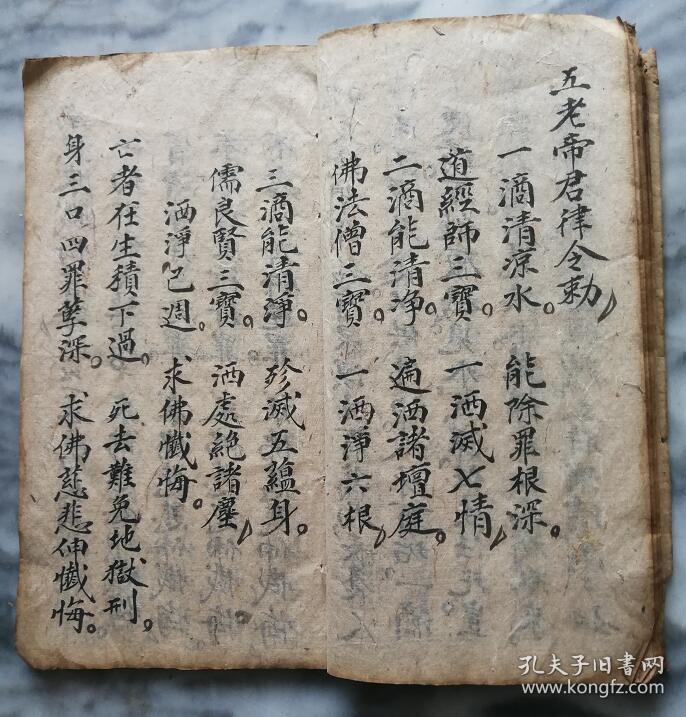 五老帝君律令勅
一滴清凉水。 能除罪根深。
道經師三寶。 一洒滅七情
二滴能清净。 遍洒諸壇庭。
佛法僧三寶。 一洒淨六根
三滴能清淨。 殄滅五蘊身。
儒良賢三寶。 洒處絶諸塵
洒淨已週。 求佛懺悔。
亡者在生積下過。 死去難免地獄刑。
身三口四罪孽深。 求佛慈悲伸懺悔。
孔夫子旧书网
www.kongfz.com